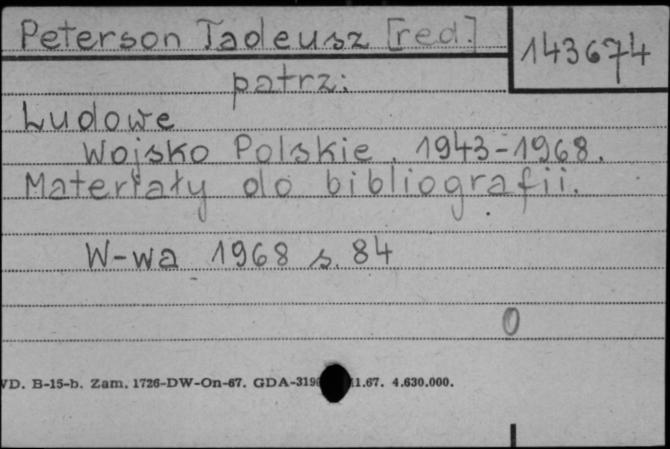 Peterson Tadeusz [red.]
143674
patrz:
Ludowe
Wojsko Polskie. 1943-1968.
Materiały do bibliografii.
W-wa 1968 s. 84
0
VD. B-15-b. Zam. 1726-DW-On-67. GDA- 11.67. 4.630.000.